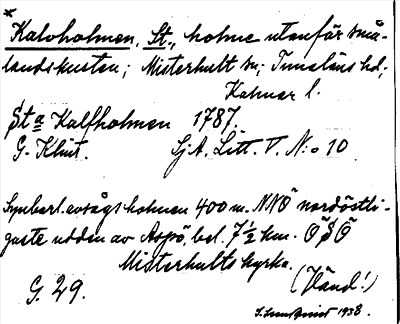 *
Kalvholmen, St., holme utanför små-
landskusten; Misterhult sn; Tunaläns hd;
Kalmar l.
Sta Kalfholmen 1787.
G. Klint. Sj.A. Litt. V. N:o 10
Synbarl. avsågs holmen 400 m. NNÖ nordöstli-
gaste udden av Aspö, bel. 7½ km. ÖSÖ
Misterhults kyrka.
G. 29. (Vänd!)
1938.